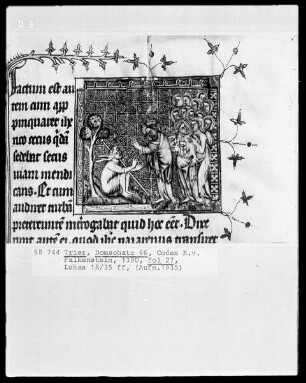 D 9
factum est au
tem cum app
pinquaret ihc
sedebat secus
uiam mendi
cans. Et cum
audiret turbã
pretereuntem interrogabat quid hoc eēt. Dixe
runt autē ei. quod ihc nazarenus transiret
68 744 Trier, Domschatz 66, Codex K.v.
Falkenstein, 1380, fol 27,
Lukas 18/35 ff, (Aufn.1935)